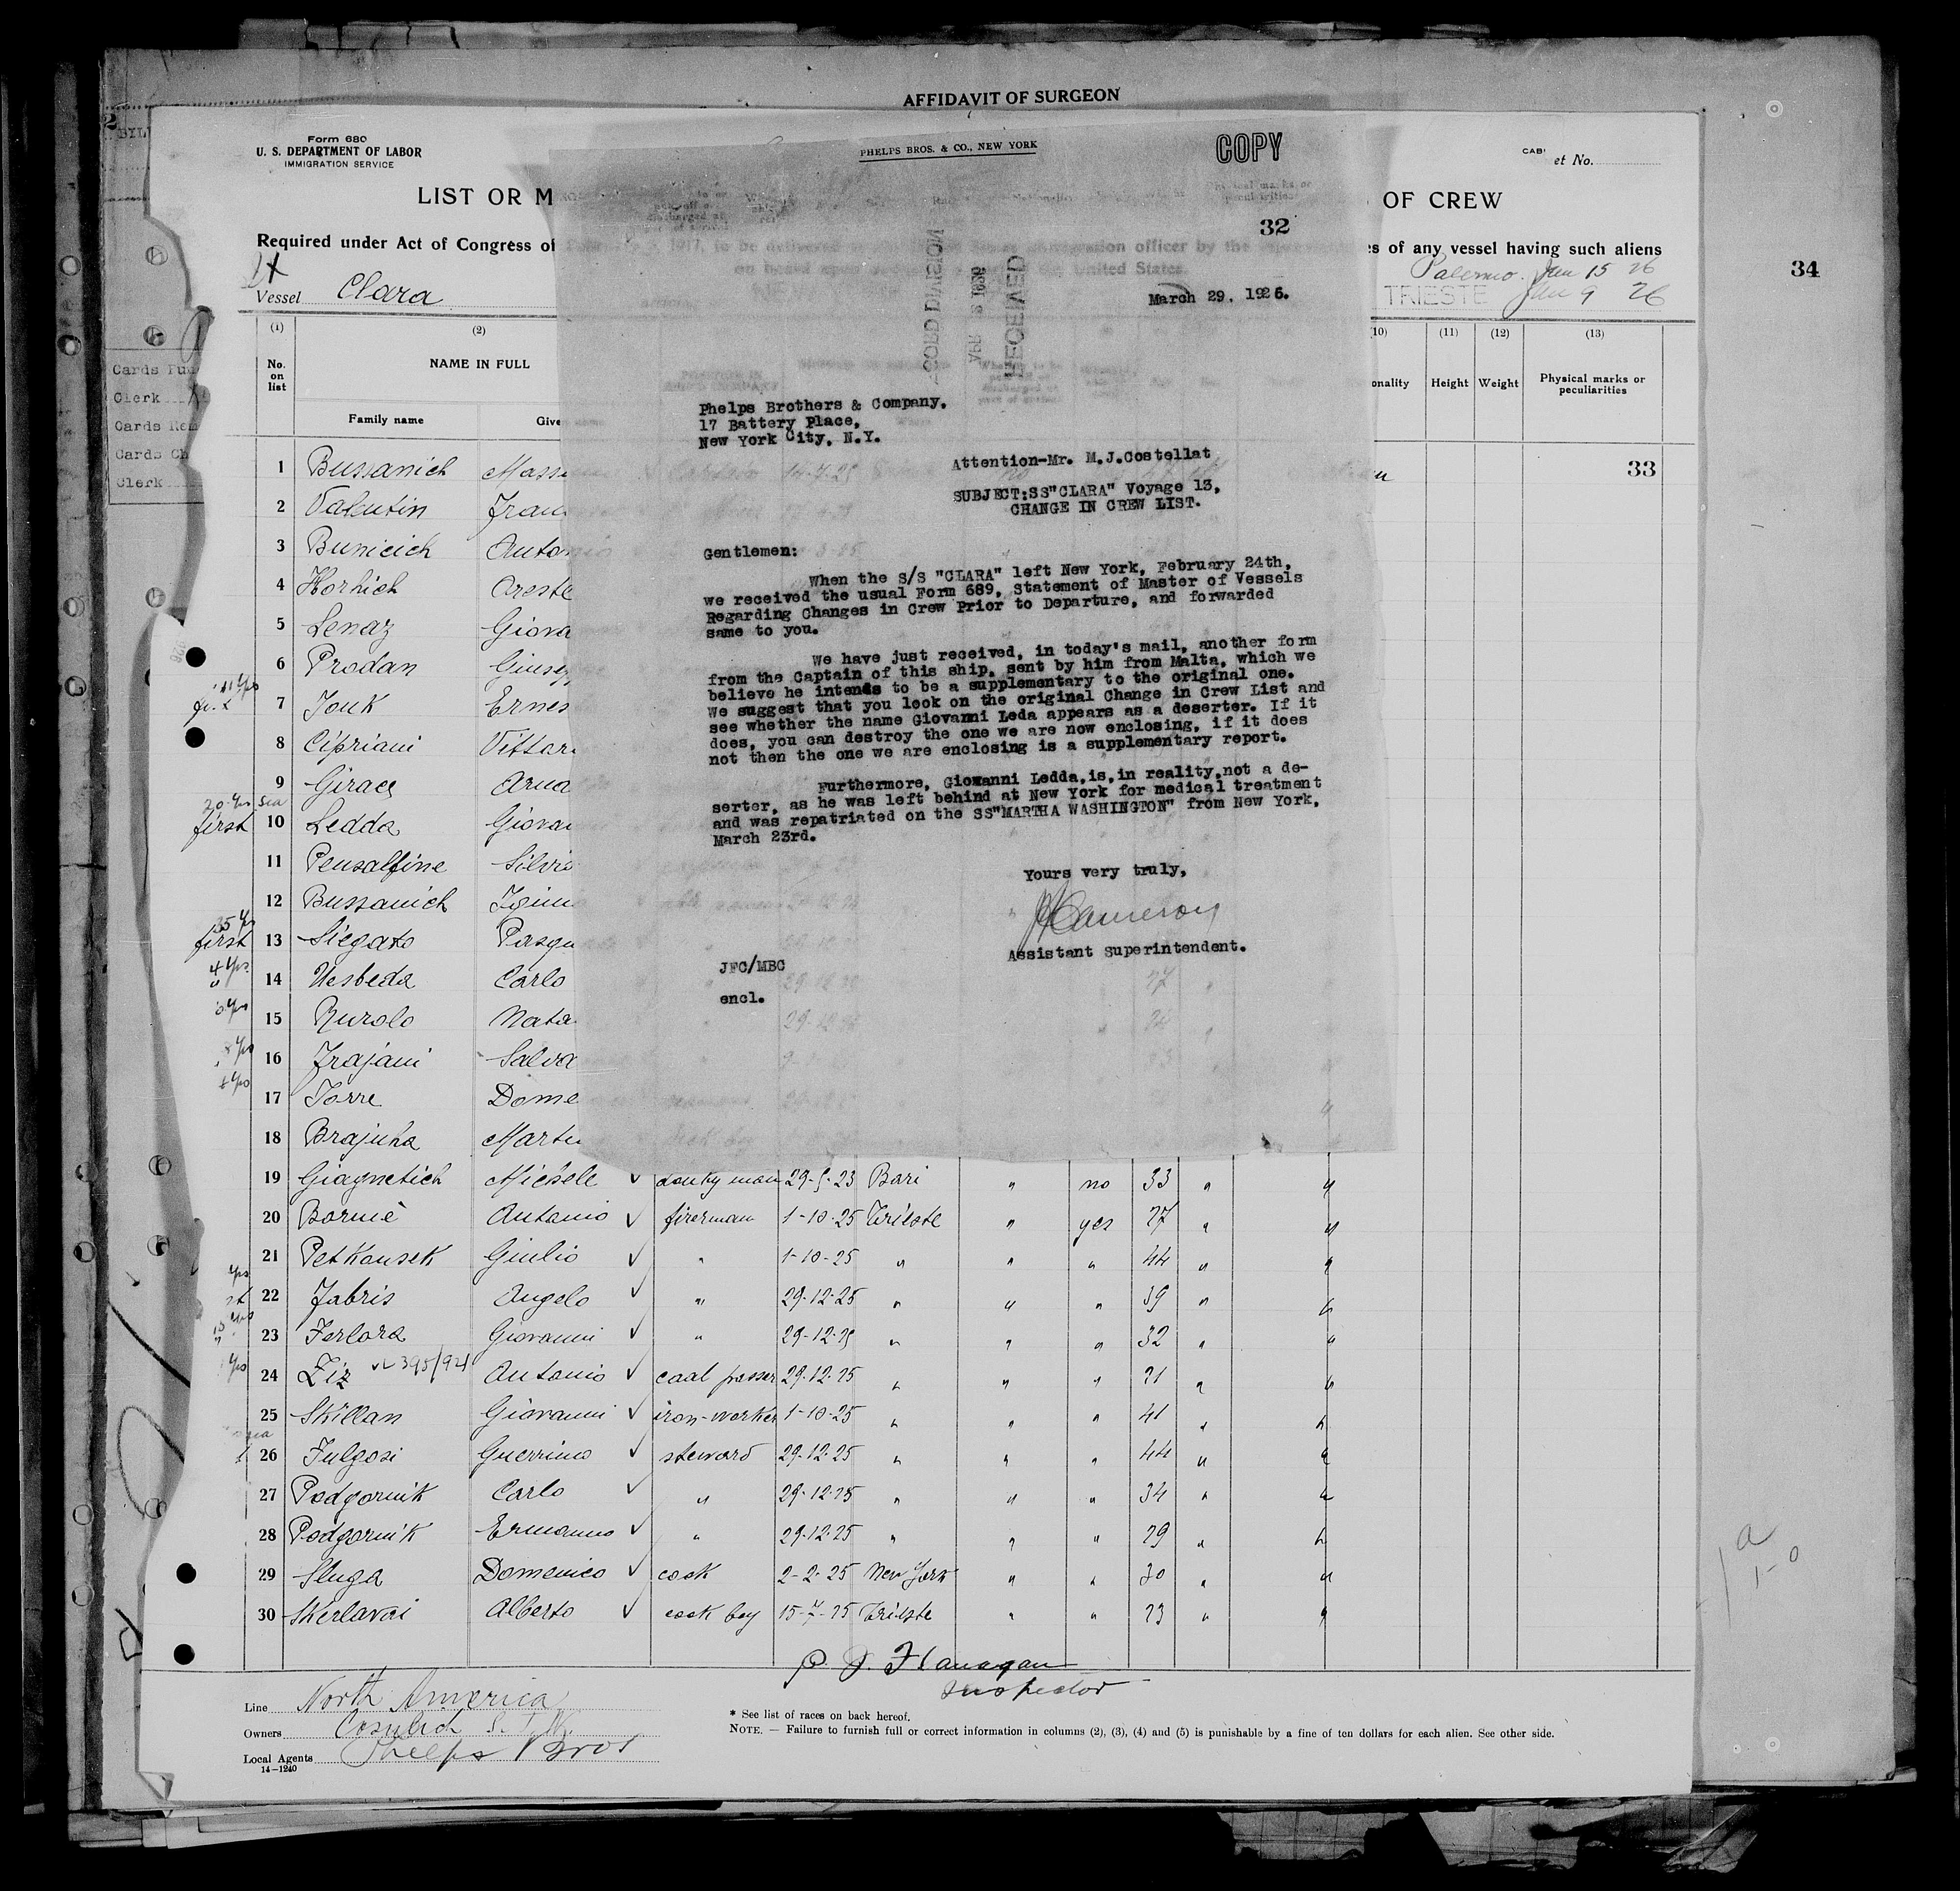 AFFIDAVIT OF SURGEON
Form 680
U. S. DEPARTMENT OF LABOR
IMMIGRATION SERVICE
et No.
LIST OR M
OF CREW
Required under Act of Congress of
es of any vessel having such aliens
Vessel Clara
Palermo. Jan 15 26
TRIESTE Jan 9 26
34
33
(1) (2) (10) (11) (12) (13)
No. on list
NAME IN FULL
Height Weight Physical marks or peculiarities
Family name Give
Cards
Clerk
Cards
Cards Ch
Clerk
PHELPS BROS. & CO., NEW YORK
COPY
32
RECEIVED
March 29, 1926.
Phelps Brothers & Company,
17 Battery Place,
New York City, N.Y.
Attention-Mr. M.J.Costellat
SUBJECT:SS"CLARA" Voyage 13,
CHANGE IN CREW LIST.
Gentlemen:
When the S/S "CLARA" left New York, February 24th,
we received the usual Form 689, Statement of Master of Vessels
Regarding Changes in Crew Prior to Departure, and forwarded
same to you.
We have just received, in today's mail, another form
from the Captain of this ship, sent by him from Malta, which we
believe he intends to be a supplementary to the original one.
We suggest that you look on the original Change in Crew List and
see whether the name Giovanni Leda appears as a deserter. If it
does, you can destroy the one we are now enclosing, if it does
not then the one we are enclosing is a supplementary report.
Furthermore, Giovanni Ledda,is,in reality,not a de-
serter, as he was left behind at New York for medical treatment
and was repatriated on the SS"MARTHA WASHINGTON" from New York,
March 23rd.
Yours very truly,
JFCameron
Assistant Superintendent.
JFC/MBC
encl.
1 Bussanich Mass
2 Valentin Fran
3 Bunicich Anton
4 Horhich Oreste
5 Lenaz Giova
6 Prodan Giusep
7 Jouk Ernes
8 Cipriani Vittor
9 Girace Arna
first 10 Ledda Giovan
11 Pensalfine Silvio
12 Bussanich Igin
first 13 Siegato Pasqu
4 yrs 14 Uesbeda Carlo
15 Rurolo Nata
16 Frajani Salva
17 Torre Dome
18 Brajuha Marti
19 Giagnetich Michele donkyman 29-5-23 Bari " no 33 " "
20 Bormè Antonio firerman 1-10-25 Trieste " yes 27 " "
21 Petkousek Giulio " 1-10-25 " " " 44 " "
22 Fabris Angelo " 29-12-25 " " " 39 " "
23 Ferlora Giovanni " 29-12-25 " " " 32 " "
24 Ziz 395/921 Antonio coal passer 29-12-25 " " " 21 " "
25 Skillan Giovanni iron-worker 1-10-25 " " " 41 " "
26 Fulgosi Guerrino steward 29-12-25 " " " 44 " "
27 Podgornik Carlo " 29-12-25 " " " 34 " "
28 Podgornik Ermanno " 29-12-25 " " " 29 " "
29 Sluga Domenico cook 2-2-25 New York " " 30 " "
30 Skerlavai Alberto cook boy 15-7-25 Trieste " " 23 " "
P. J. Flanagan
Inspector
Line North America
Owners Cosulich S. T. N.
Local Agents Phelps Bros
14-1240
* See list of races on back hereof.
NOTE. — Failure to furnish full or correct information in columns (2), (3), (4) and (5) is punishable by a fine of ten dollars for each alien. See other side.